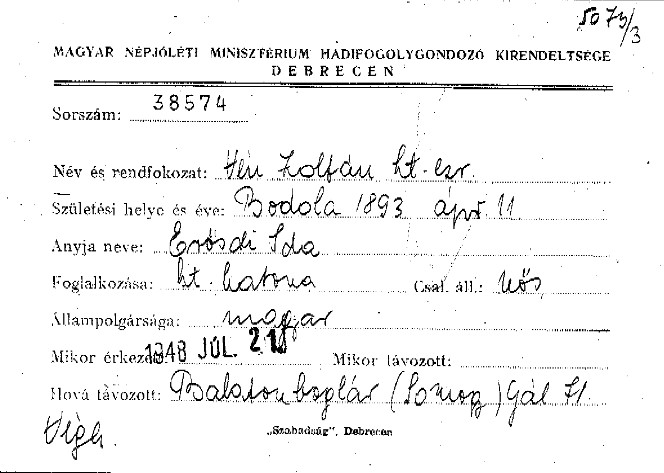 5073/3
MAGYAR NÉPJÓLÉTI MINISZTÉRIUM HADIFOGOLYGONDOZÓ KIRENDELTSÉGE
DEBRECEN
Sorszám: 38574
Név és rendfokozat: Vén Zoltán ht. ezr.
Születési helye és éve: Bodola 1893 ápr. 11.
Anyja neve: Erősdi Ida
Foglalkozása: ht. katona Csal. áll.: nős
Állampolgársága: magyar
Mikor érkezett: 1948 JÚL. 21 Mikor távozott:
Hová távozott: Balatonboglár (Somogy) Gál
Végh.
„Szabadság", Debrecen